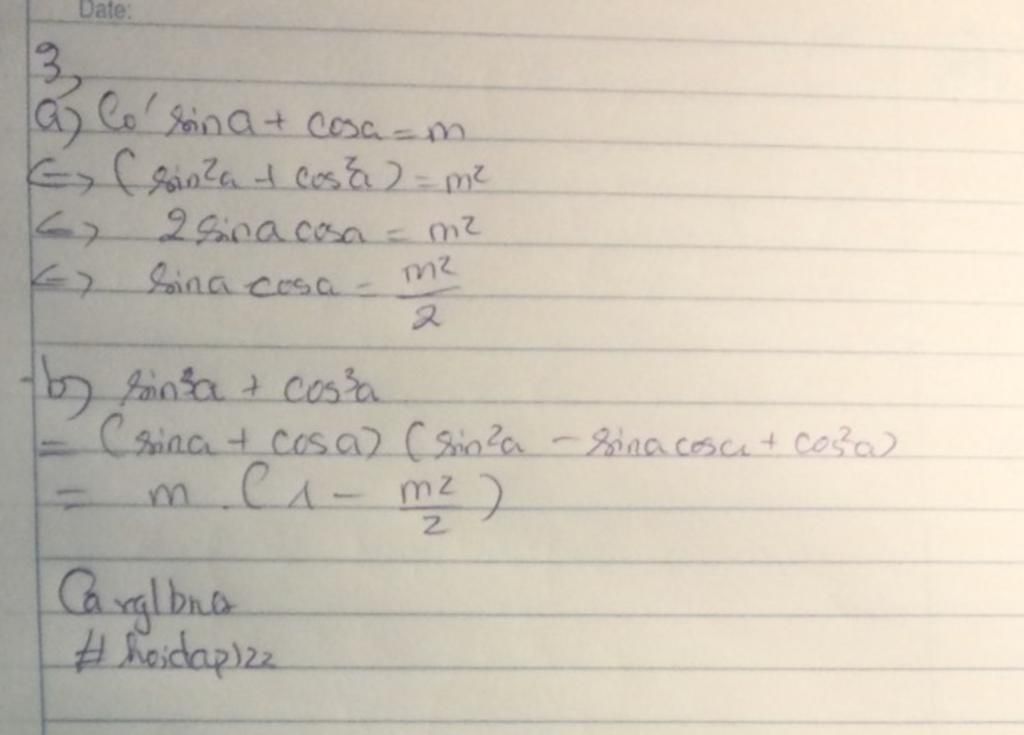 Date:
3,
a) Có sina + cosa = m
<=> (sin²a + cos²a) = m²
<=> 2sinacosa = m²
<=> sinacosa = m²/2
b) sin³a + cos³a
= (sina + cosa) (sin²a - sinacosa + cos²a)
= m . (1 - m²/2)
# hoidap)22